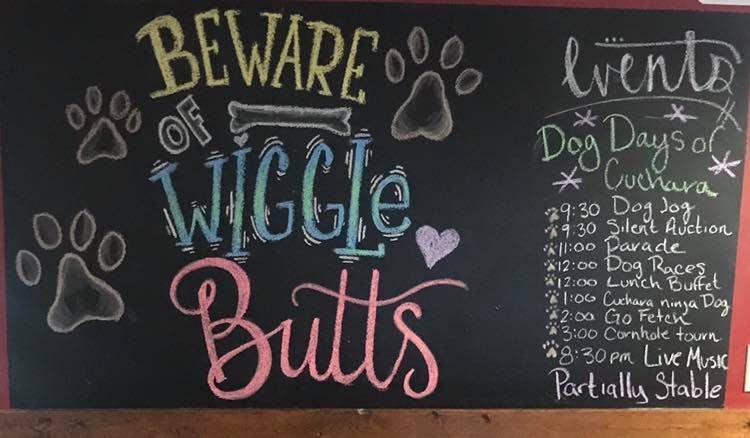 BEWARE
OF
WIGGLe
Butts
Events
Dog Days of
Cuchara
9:30 Dog Jog
9:30 Silent Auction
11:00 Parade
12:00 Dog Races
12:00 Lunch Buffet
1:00 Cuchara ninja Dog
2:00 Go Fetch
3:00 Cornhole tourn
8:30pm Live Music
Partially Stable